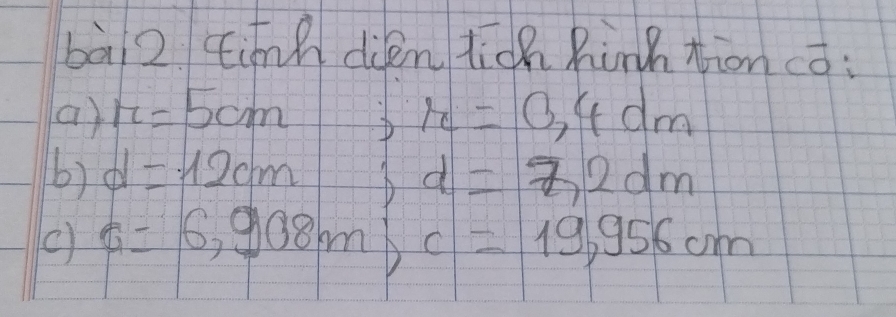 bài 2: tính diện tích hình tròn có:
a) r = 5cm ; r = 0,4 dm
b) d = 12cm ; d = 7,2 dm
c) c = 6,908m ; c = 19,956 cm